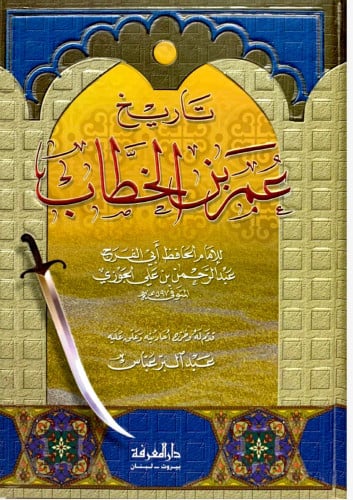 تاريخ
عمر بن الخطاب
للإمام الحافظ أبي الفرج
عبد الرحمن بن علي الجوزي
المتوفى ٥٩٧هـ
قدم له وخرج أحاديثه وعلق عليه
عبد البر عباس
دار المعرفة
بيروت - لبنان